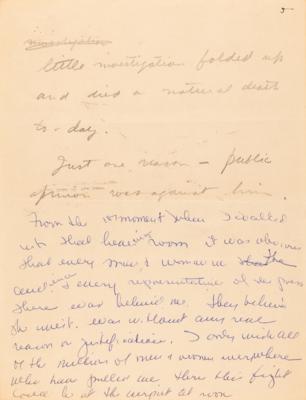 5
investigation
little investigation folded up
and died a natural death
to-day.
Just one reason – public
opinion was against him.
From the moment when I walled
into that hearing room it was obvious
that every man & woman in the
audience & every representative of the press
there was behind me. They believe
the was without any real
reason or justification. I only wish all
of the millions of men & women everywhere
who have pulled me thru this fight
could be at the airport at noon